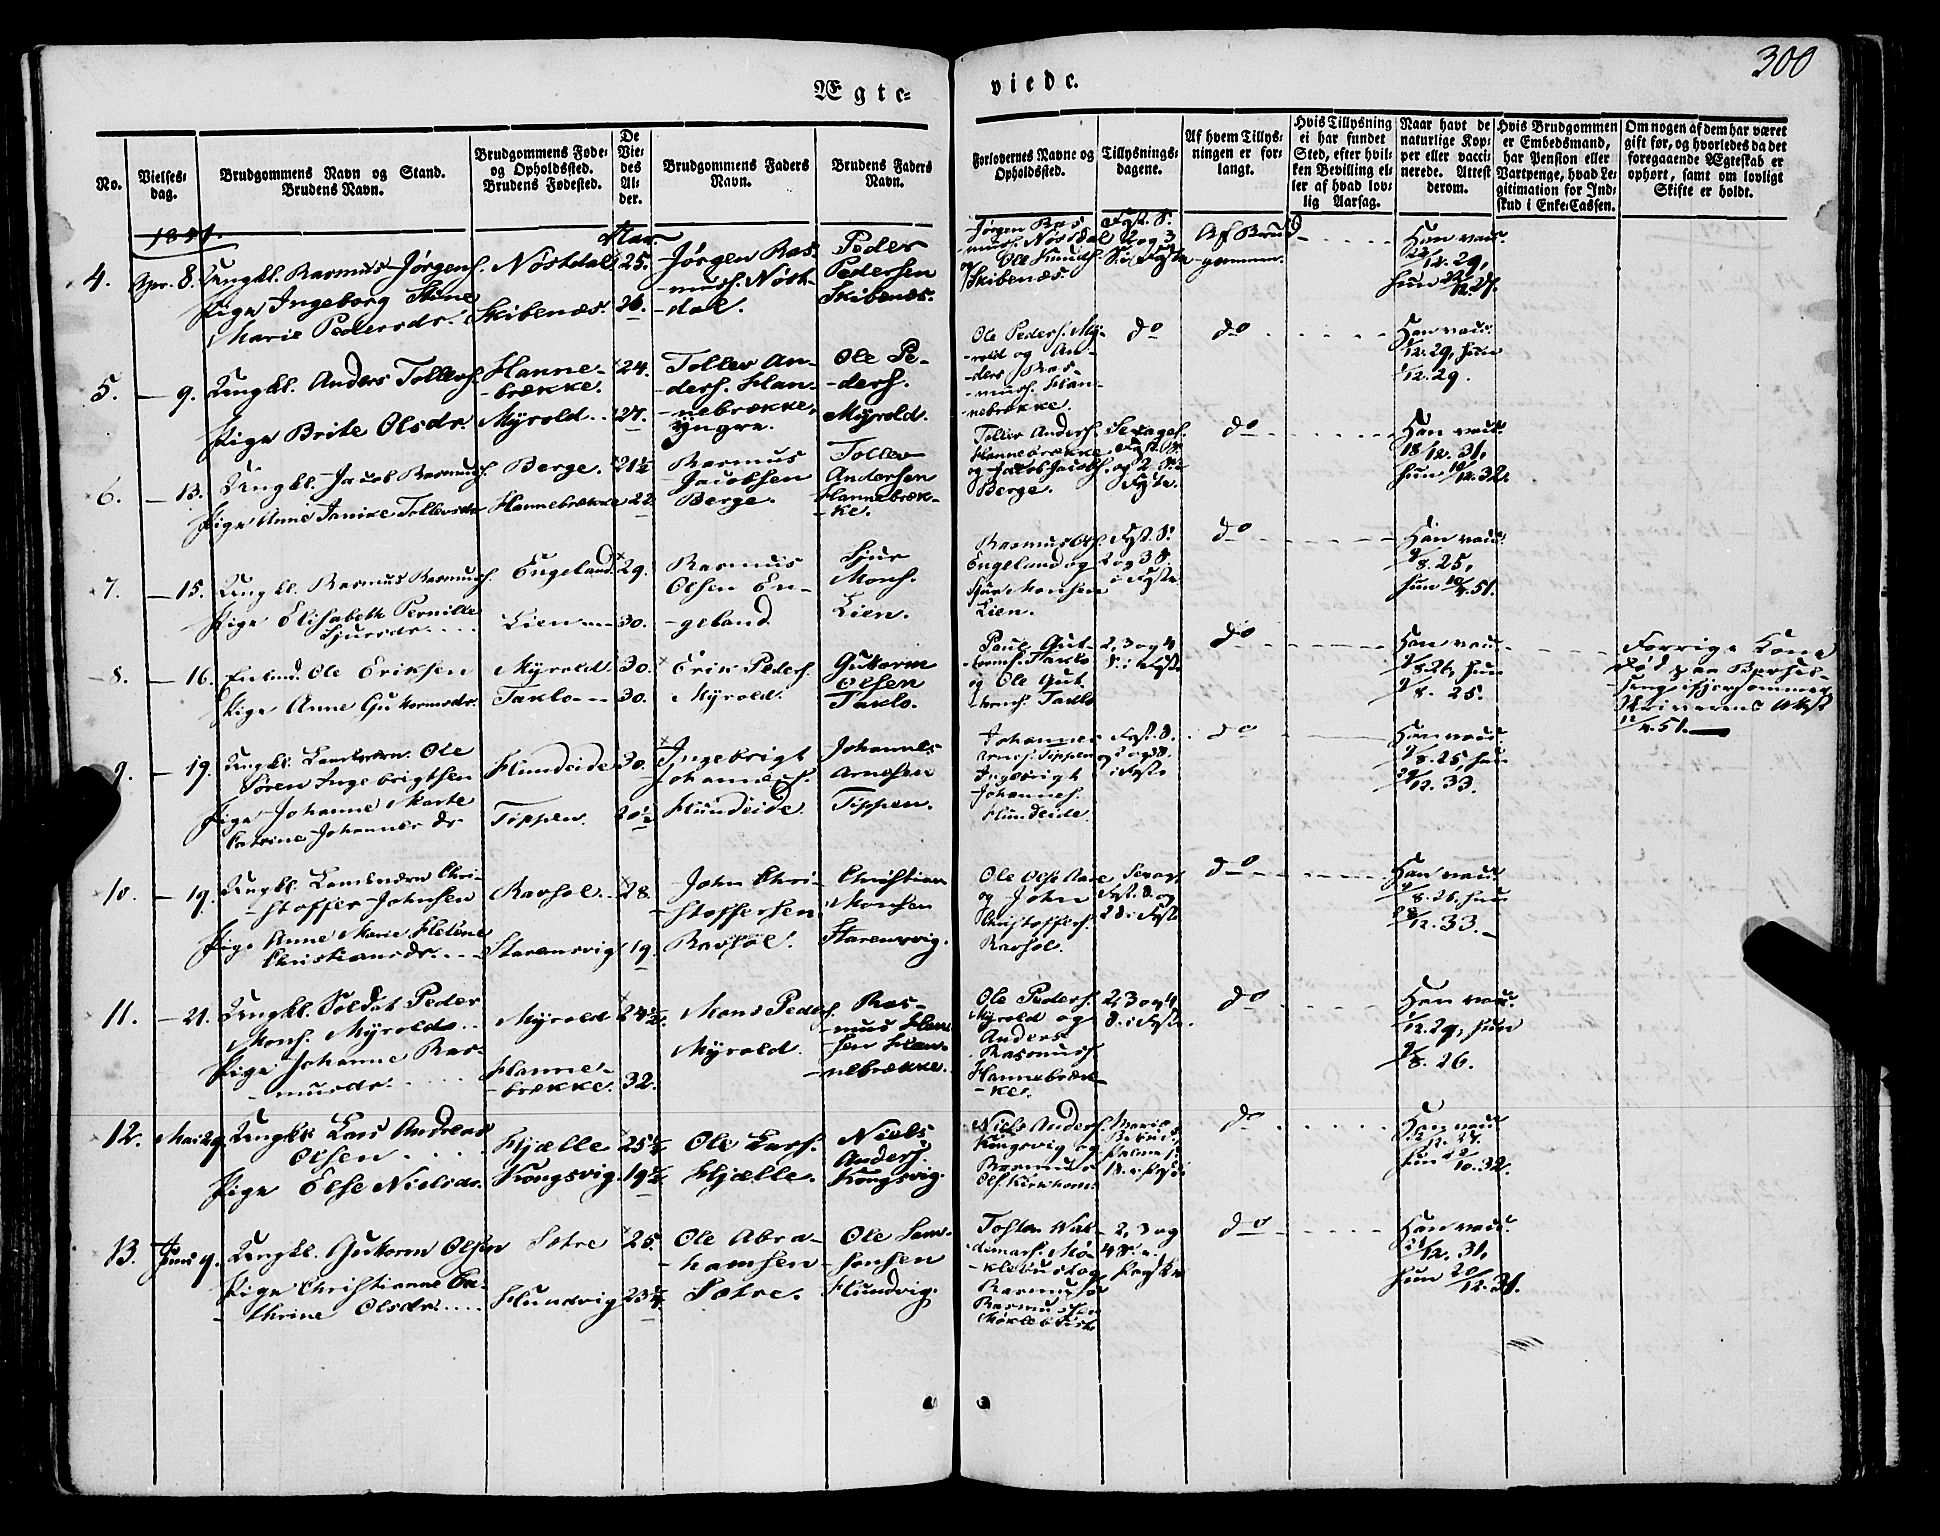 300
Ægte=
viede.
No.
Vielses=
dag.
Brudgommens Navn og Stand.
Brudens Navn.
Brudgommens Føde=
og Opholdssted.
Brudens Fødested.
De
Vie=
des
Al=
der.
Brudgommens Faders
Navn.
Brudens Faders
Navn.
Forlovernes Navne og
Opholdssted.
Tillysnings=
dagene.
Af hvem Tillys=
ningen er for=
langt.
Hvis Tillysning
ei har fundet
Sted, efter hvil=
ken Bevilling el=
ler af hvad lov=
lig Aarsag.
Naar havt de
naturlige Kop=
per eller vacci=
nerede. Attest
derom.
Hvis Brudgommen
er Embedsmand,
har Pension eller
Vartpenge, hvad Le=
gitimation for Ind=
skud i Enke=Cassen.
Om nogen af dem har været
gift før, og hvorledes da det
foregaaende Ægteskab er
ophørt, samt om lovligt
Skifte er holdt.
1851.
Aar
4. Apr. 8. Ungkl. Rasmus Jørgens.
Pige Ingeborg Stine
Marie Pedersdr.
Nøstdal
Skibenæs.
25.
26.
Jørgen Ras-
-mus. Nøst-
-dal.
Peder
Pedersen
Skibenæs.
Jørgen Ras
-mus. Nøstdal
og Ole Knuds.
Skibenæs
Fast. S.
2 og 3
S. i Faste
Af Brud
-gommen.
Han vacc.
22/12. 29,
hun 22/12. 27.
5. — 9. Ungkl. Anders Tollefs.
Pige Brite Olsdr.
Hanne-
-brække.
Myrold.
24.
27.
Tollev An-
-ders. Han-
-nebrække,
yngre.
Ole Pe-
-ders.
Myrold.
Ole Peders. My-
-rold og An-
-ders Ras-
-mus. Han-
-nebrække.
do
do
Han vacc.
/12. 29, hun
/12. 29.
6. — 13. Ungkl. Jacob Rasmus.
Pige Anne Janike Tollevsdr.
Berge.
Hannebrække
21½
22
Rasmus
Jacobsen
Berge.
Tollev
Andersen
Hannebræk-
-ke.
Tollev Anders.
Hannebrække
og Jacob Jacobs.
Berge.
Sexages.
Fast. S.
og 2 S. i
Faste.
do
Han vacc.
18/12. 31,
hun 10/12. 32.
7. — 15. Ungkl. Rasmus Rasmus.
Pige Elisabeth Pernille
Sjursdr.
Engeland.
Lien
29.
30.
Rasmus
Olsen En-
-geland
Sjur
Mons.
Lien.
Rasmus Ols.
Engeland og
Sjur Monsen
Lien.
Fast. S.
2 og 3 S.
i Faste
do
Han vacc.
9/8. 25,
hun 10/4. 51.
8. — 16. Enkmd. Ole Eriksen
Pige Anne Guttormsdr.
Myrold.
Taklo
30.
30.
Erik Peders.
Myrold.
Guttorm
Olsen
Taklo.
Paul Gut-
-torms. Taklo
og Ole Gut-
-torms. Taklo
2, 3 og 4
S. i Faste
do
Han vacc.
9/8. 26, hun
9/8. 25.
Forrige Kone
død paa
Skriverens Attest
/4. 51.
9. — 19. Ungkl. Landværn. Ole
Søren Ingebrigtsen
Pige Johanne Marte
Catrine Johannesdr
Hundeide
Tippen.
30.
20½
Ingebrigt
Johannes.
Hundeide.
Johannes
Arnesen
Tippen.
Johannes
Arnes. Tippen
Ingebrigt
Johannes.
Hundeide.
Fast. S.
2 og 3 S.
i Faste
do
Han vacc.
9/8. 25, hun
29/12. 33.
10. — 19. Ungkl. Landværn Chri-
-stoffer Johnsen
Pige Anne Marie Helene
Christiansdr.
Ravhol.
Starensvig
28.
19.
John Chri-
-stoffersen
Ravhol.
Christian
Monsen
Starensvig.
Ole Olse
og John
Christoffers.
Ravhol.
Sexag.
Fast. S. og
2 S. i Faste
do
Han vacc.
9/8. 26, hun
28/12. 33.
11. — 21. Ungkl. Soldat Peder
Mons. Myrold
Pige Johanne Ras-
-musdr.
Myrold
Hanne-
-brække.
24½
32.
Mons Peders.
Myrold.
Ras-
-mus
-sen Han-
-nebrække.
Ole Peders.
Myrold og
Anders
Rasmus.
Hannebræk-
-ke.
2, 3 og 4
S. i Faste.
do
Han vacc.
/12. 29, hun
9/8. 26.
12. Mai 29. Ungkl. Lars Andreas
Olsen
Pige Else Nielsdr.
Hjælle
Kongsvig.
25½
19½
Ole Lars.
Hjælle.
Niels
Anders.
Kongsvig.
Niels Anders.
Kongsvig og
Rasmus
Ols. Kirkhorn.
Marie
Bebud.
Palme S.
do
Han vacc.
12. 27.
hun 12/10. 32.
13. Juni 9. Ungkl. Guttorm Olsen
Pige Christianne Ca-
-thrine Olsdr.
Totre
Hundvig
25.
23¼
Ole Abra-
-hamsen
Totre.
Ole Sam-
-sonsen
Hundvig.
Tosten Wal-
-demars. Mø-
-klebust og
Rasmus
Rasmussen
Møklebust
2, 3 og
4 S. e.
Paaske
do
Han vacc.
/12. 31,
hun 20/12. 31.